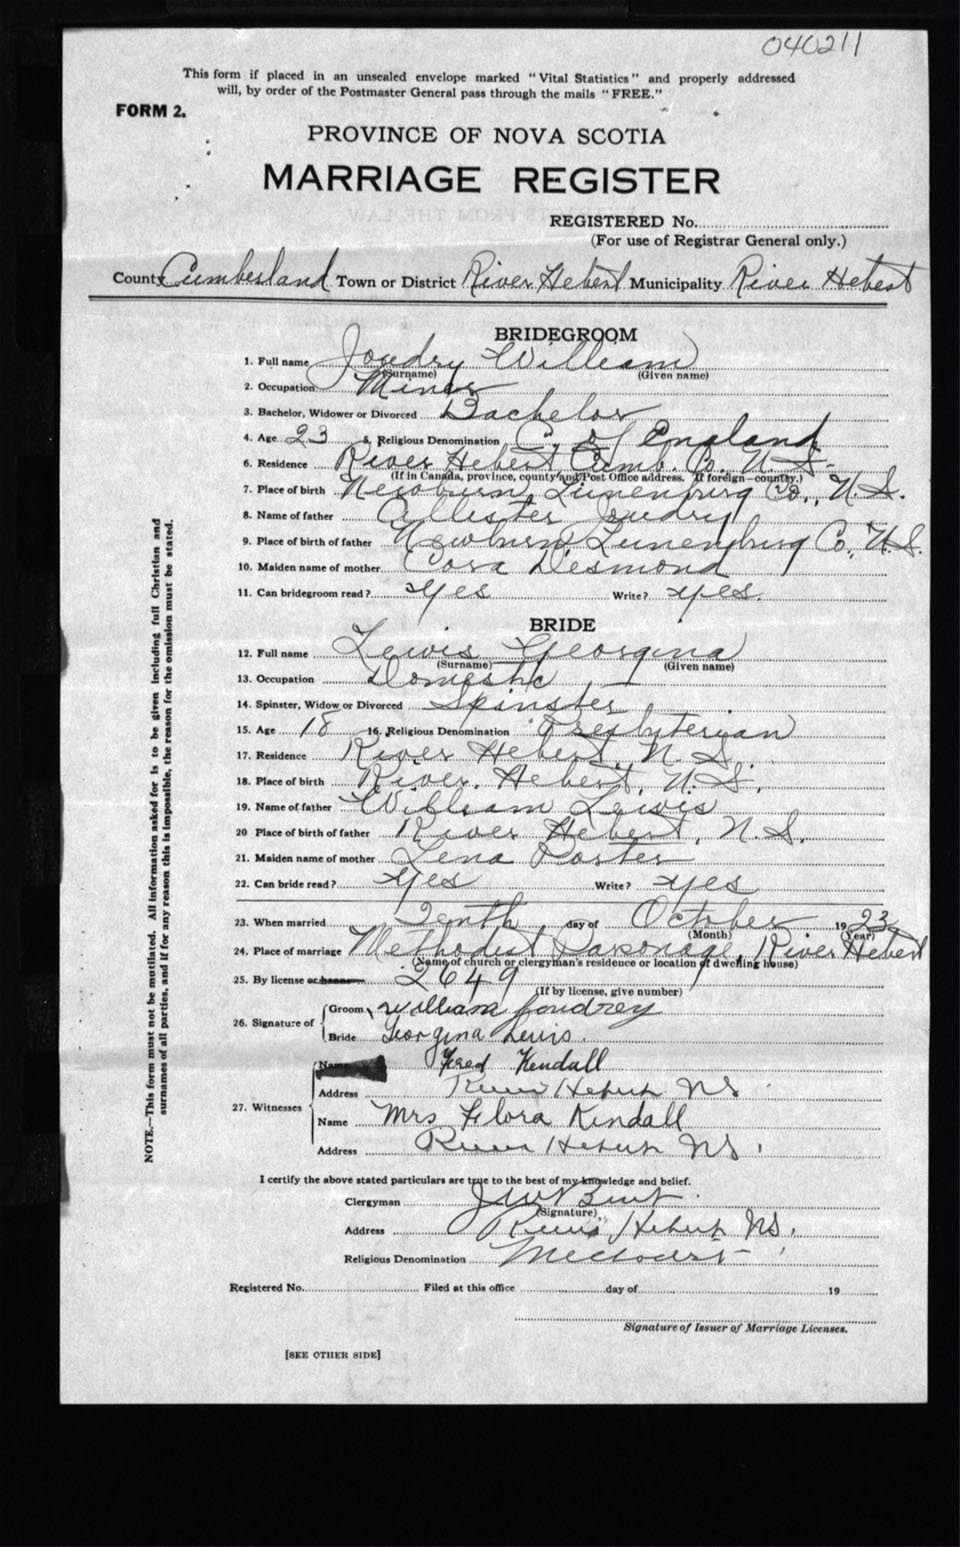 040211
This form if placed in an unsealed envelope marked "Vital Statistics" and properly addressed
will, by order of the Postmaster General pass through the mails "FREE."
FORM 2.
PROVINCE OF NOVA SCOTIA
MARRIAGE REGISTER
REGISTERED No.
(For use of Registrar General only.)
County Cumberland Town or District River Hebert Municipality River Hebert
BRIDEGROOM
1. Full name Joudry William
(Surname) (Given name)
2. Occupation Miner
3. Bachelor, Widower or Divorced Bachelor
4. Age 23 5. Religious Denomination C. of England
6. Residence River Hebert Cumb. Co. N.S.
(If in Canada, province, county and Post Office address. If foreign—country.)
7. Place of birth Newburn, Lunenburg Co., N.S.
8. Name of father Allister Joudry
9. Place of birth of father Newburn, Lunenburg Co., N.S.
10. Maiden name of mother Cora Desmond
11. Can bridegroom read? Yes Write? yes.
BRIDE
12. Full name Lewis Georgina
(Surname) (Given name)
13. Occupation Domestic
14. Spinster, Widow or Divorced Spinster
15. Age 18 16. Religious Denomination Presbyterian
17. Residence River Hebert, N.S.
18. Place of birth River Hebert, N.S.
19. Name of father William Lewis
20 Place of birth of father River Hebert, N.S.
21. Maiden name of mother Lena Porter
22. Can bride read? Yes Write? yes
23. When married Tenth day of October 1923
(Month) (Year)
24. Place of marriage Methodist Parsonage, River Hebert
(Name of church or clergyman's residence or location of dwelling house)
25. By license or banns 2649
(If by license, give number)
26. Signature of Groom William Joudrey
Bride Georgina Lewis.
27. Witnesses Name Fred Kendall
Address River Hebert NS
Name Mrs Flora Kendall
Address River Hebert NS
I certify the above stated particulars are true to the best of my knowledge and belief.
Clergyman
(Signature)
Address River Hebert NS.
Religious Denomination Methodist
Registered No. Filed at this office day of 19
Signature of Issuer of Marriage Licenses.
[SEE OTHER SIDE]
NOTE.—This form must not be mutilated. All information asked for is to be given including full Christian and
surnames of all parties, and if for any reason this is impossible, the reason for the omission must be stated.